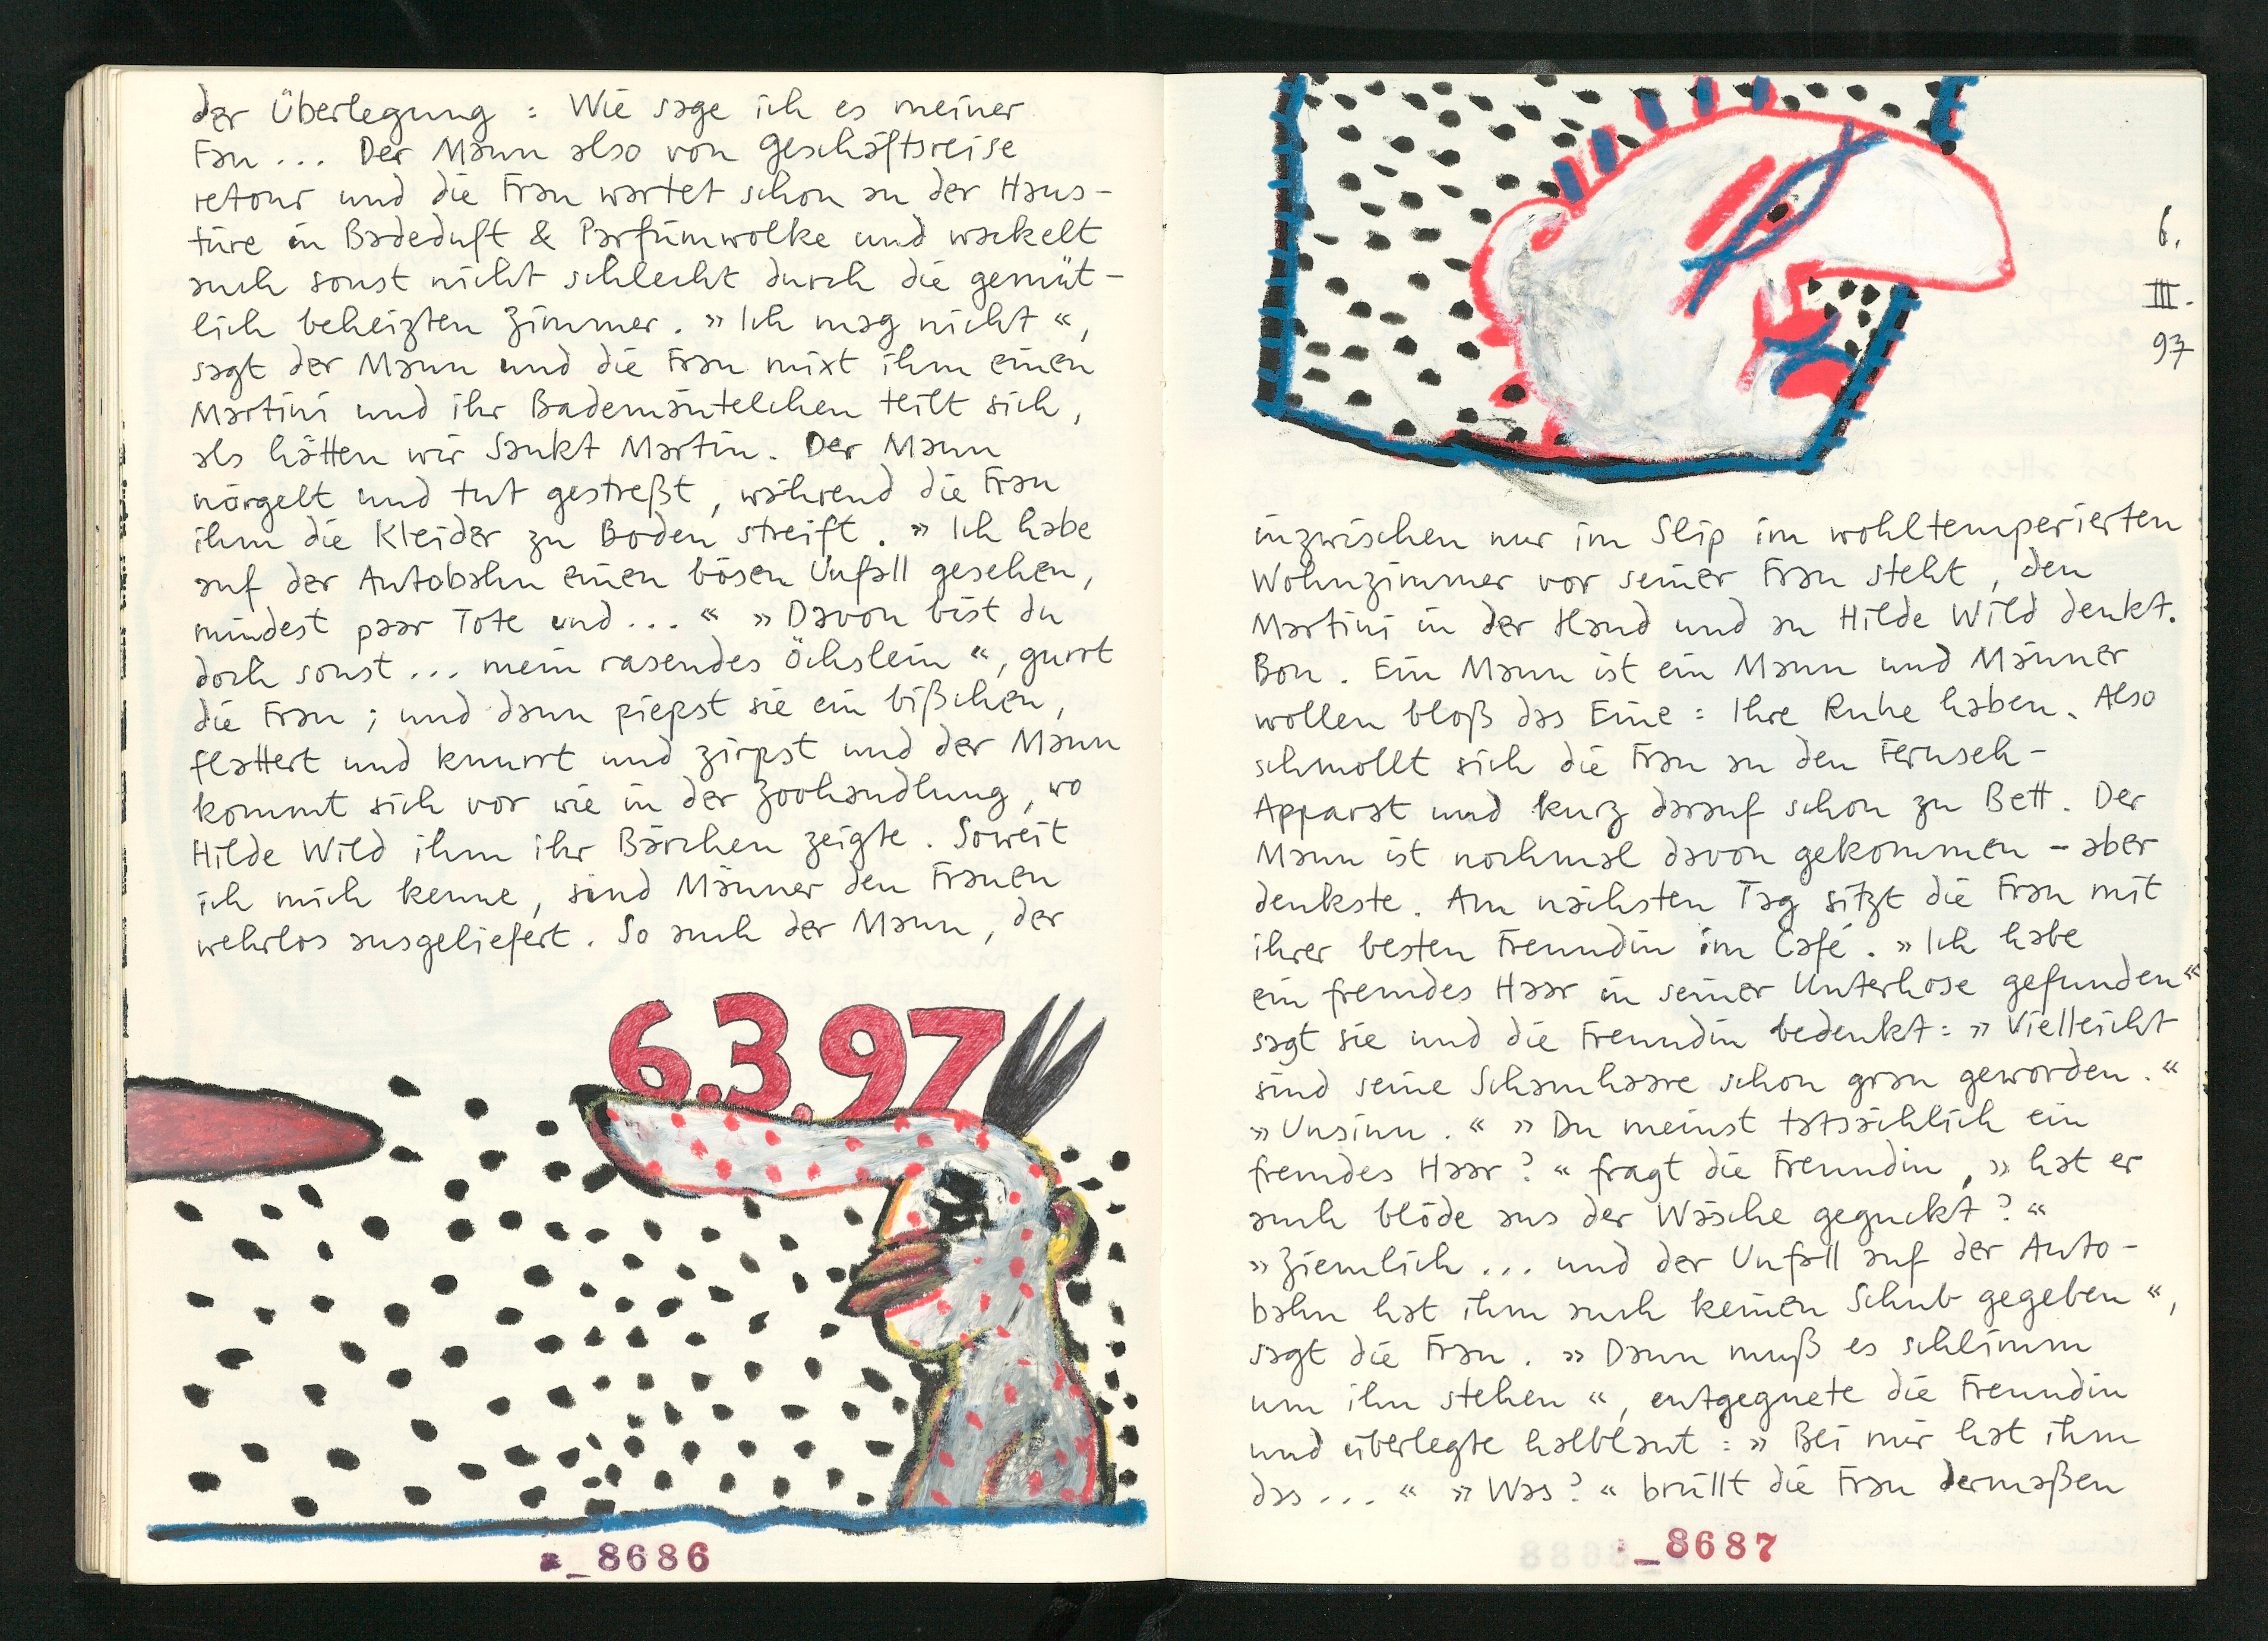 der Überlegung : Wie sage ich es meiner
Frau ... Der Mann also von Geschäftsreise
retour und die Frau wartet schon an der Haus-
türe in Badeduft & Parfümwolke und wackelt
auch sonst nicht schlecht durch die gemüt-
lich beheizten Zimmer. » Ich mag nicht «,
sagt der Mann und die Frau mixt ihm einen
Martini und ihr Bademäntelchen teilt sich,
als hätten wir Sankt Martin. Der Mann
nörgelt und tut gestreßt, während die Frau
ihm die Kleider zu Boden streift. » Ich habe
auf der Autobahn einen bösen Unfall gesehen,
mindest paar Tote und ... « » Davon bist du
doch sonst ... mein rasendes Öchslein «, gurrt
die Frau ; und dann piepst sie ein bißchen,
flattert und knurrt und zirpst und der Mann
kommt sich vor wie in der Zoohandlung, wo
Hilde Wild ihm ihr Bärchen zeigte. Soweit
ich mich kenne, sind Männer den Frauen
wehrlos ausgeliefert. So auch der Mann, der
6.3.97
_8686
6.
III.
97
inzwischen nur im Slip im wohltemperierten
Wohnzimmer vor seiner Frau steht, den
Martini in der Hand und an Hilde Wild denkt.
Bon. Ein Mann ist ein Mann und Männer
wollen bloß das Eine : Ihre Ruhe haben. Also
schmollt sich die Frau an den Fernseh-
Apparat und kurz darauf schon zu Bett. Der
Mann ist nochmal davon gekommen – aber
denkste. Am nächsten Tag sitzt die Frau mit
ihrer besten Freundin im Café. » Ich habe
ein fremdes Haar in seiner Unterhose gefunden «
sagt sie und die Freundin bedenkt : » Vielleicht
sind seine Schamhaare schon grau geworden. «
» Unsinn. « » Du meinst tatsächlich ein
fremdes Haar ? « fragt die Freundin, » hat er
auch blöde aus der Wäsche geguckt ? «
» Ziemlich ... und der Unfall auf der Auto-
bahn hat ihm auch keinen Schub gegeben «,
sagt die Frau. » Dann muß es schlimm
um ihn stehen «, entgegnete die Freundin
und überlegte halblaut : » Bei mir hat ihm
das ... « » Was ? « brüllt die Frau dermaßen
_8687